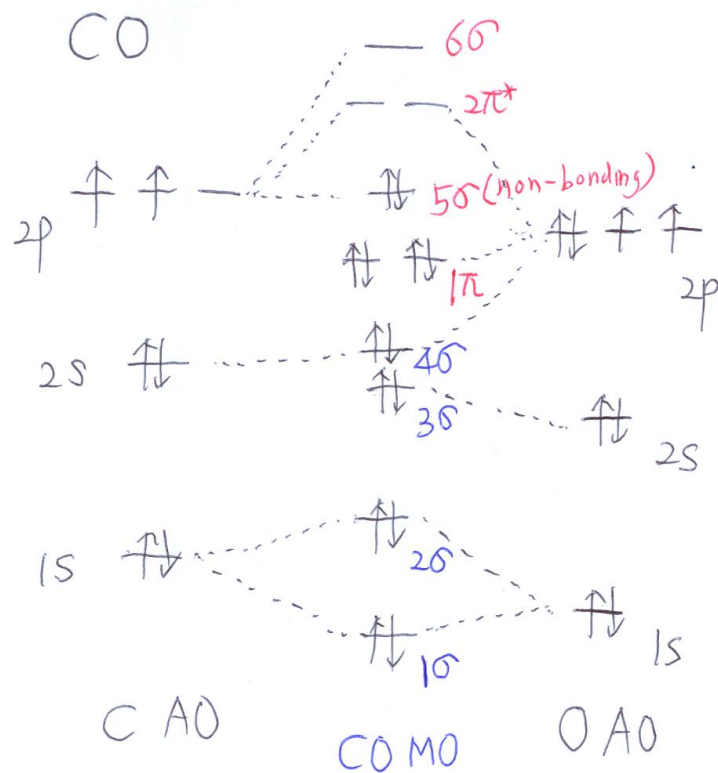 CO
6σ
2π*
5σ (non-bonding)
2p
1π
2p
2S
4σ
3σ
2S
1S
2σ
1S
1σ
C AO
CO MO
O AO